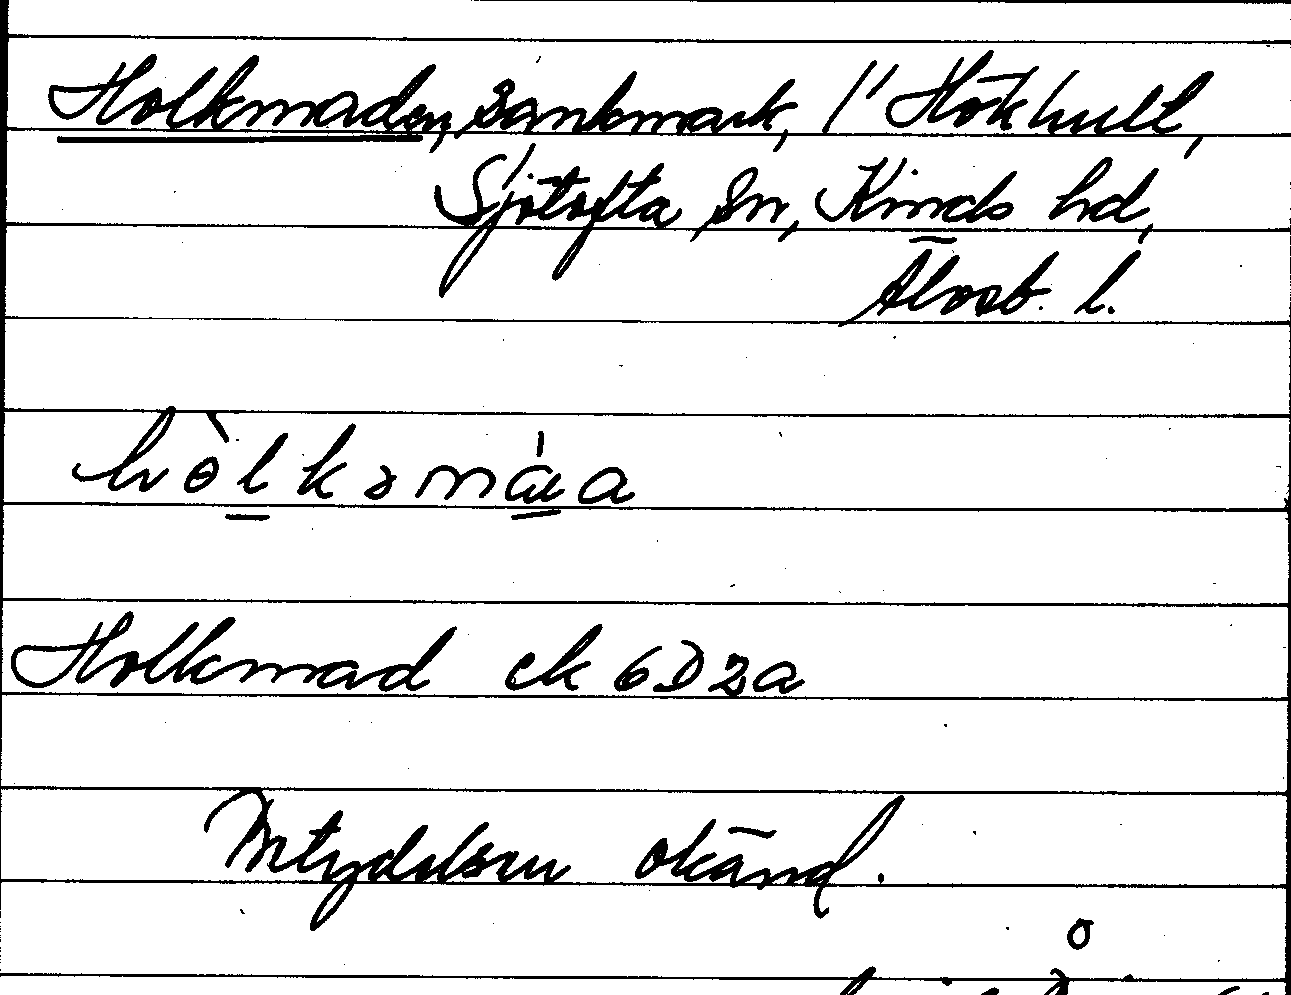 Holkmaden, Sankmark, i Hökhult,
Sjötofta sn, Kinds hd,
Älvsb. l.
hòlkəmáa
Holkmad ek 6D2a
Betydelsen okänd.